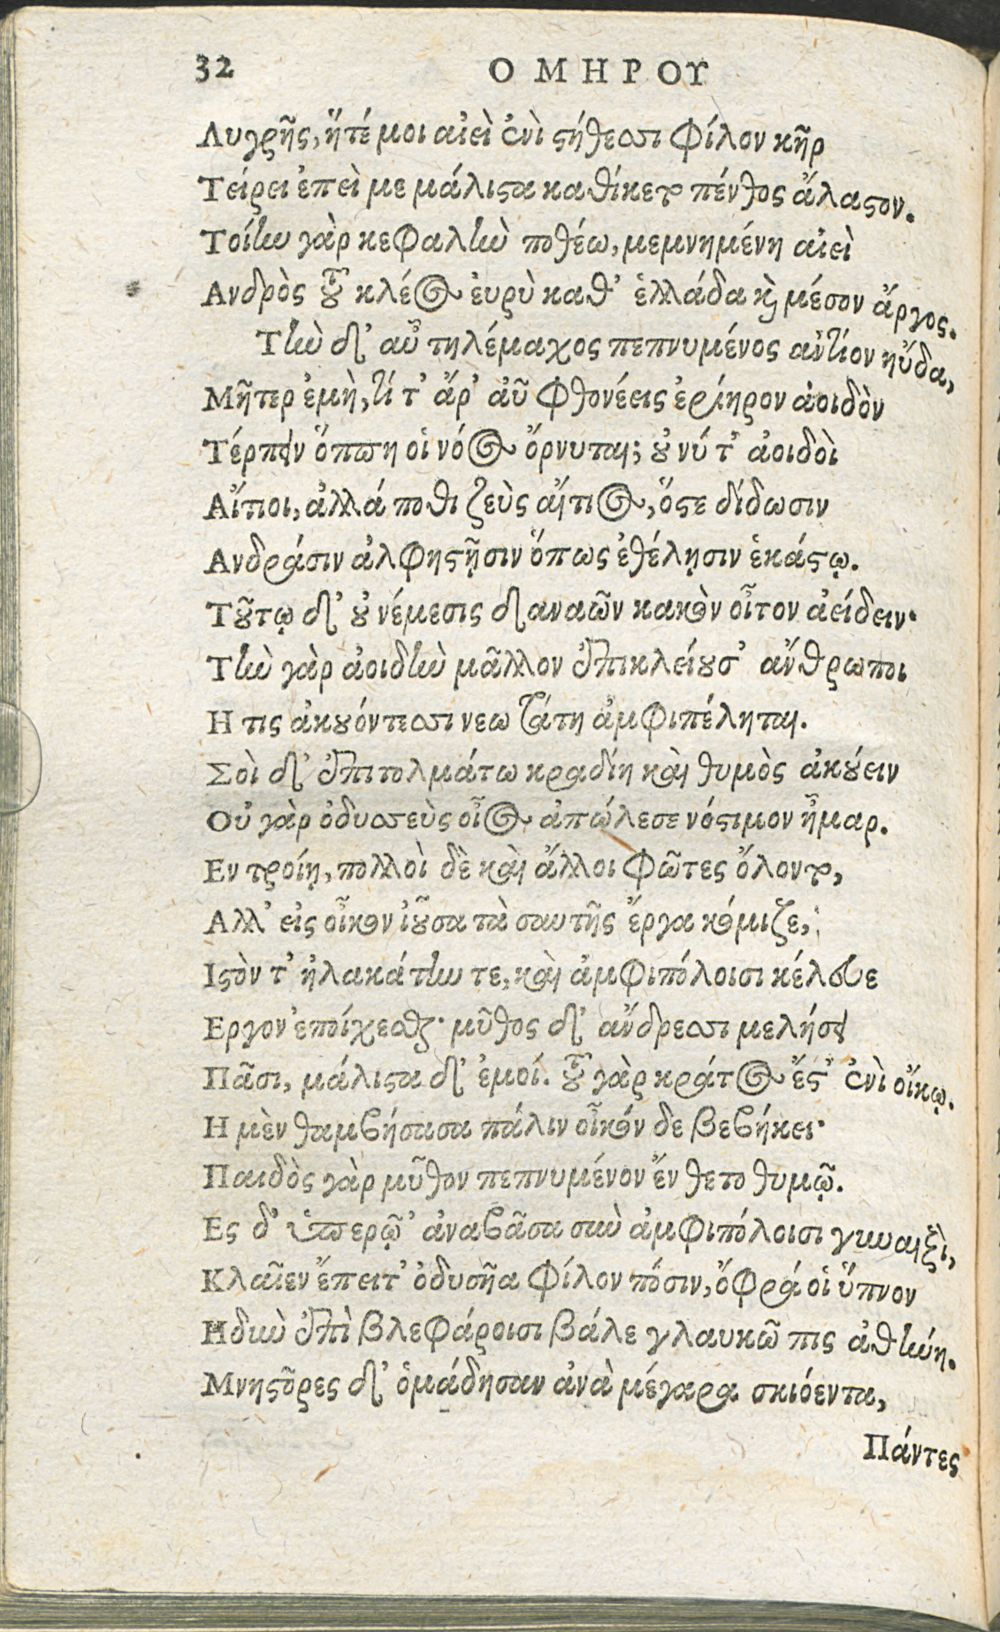 32 ΟΜΗΡΟΥ
Λυγρῆς, ἥτέ μοι αἰεὶ ἐνὶ ϛήθεσσι φίλον κῆρ
Τείρει ἐπεὶ με μάλιϛα καθίκετο πένθος ἄλαϛον.
Τοίην γὰρ κεφαλὴν ποθέω, μεμνημένη αἰεὶ
Ανδρὸς τȣ͂ κλέος ἐυρὺ καθ' ἑλλάδα κὶ μέσον ἄργος.
Τὴν δ' αὖ τηλέμαχος πεπνυμένος ἀντίον ηὔδα,
Μῆτερ ἐμὴ, τί τ' ἄρ' αὖ φθονέεις ἐρίηρον ἀοιδὸν
Τέρπειν ὅππη οἱ νόος ὄρνυται; ȣ̓ νύ τ' ἀοιδοὶ
Αἴτιοι, ἀλλά ποθι ζεὺς αἴτιος, ὅϛε δίδωσιν
Ανδράσιν ἀλφηϛῇσιν ὅπως ἐθέλῃσιν ἑκάϛῳ.
Τȣ́τῳ δ' ȣ̓ νέμεσις δαναῶν κακὸν οἶτον ἀείδειν·
Τὴν γὰρ ἀοιδὴν μᾶλλον ἐπικλείȣσ' ἄνθρωποι
Η τις ἀκȣόντεσσι νεωτάτη ἀμφιπέληται.
Σοὶ δ' ἐπιτολμάτω κραδίη καὶ θυμὸς ἀκȣ́ειν
Οὐ γὰρ ὀδυσσεὺς οἶος ἀπώλεσε νόϛιμον ἦμαρ.
Εν τροίῃ, πολλοὶ δὲ καὶ ἄλλοι φῶτες ὄλοντο,
Αλλ' εἰς οἶκον ἰȣ͂σα τὰ σαυτῆς ἔργα κόμιζε,
Ιϛόν τ' ἠλακάτην τε, καὶ ἀμφιπόλοισι κέλευε
Εργον ἐποίχεσθαι· μῦθος δ' ἄνδρεσσι μελήσει
Πᾶσι, μάλιϛα δ' ἐμοί. τȣ͂ γὰρ κράτος ἔϛ' ἐνὶ οἴκῳ.
Η μὲν θαμβήσασα πάλιν οἶκόν δε βεβήκει·
Παιδὸς γὰρ μῦθον πεπνυμένον ἔν θετο θυμῷ.
Ες δ' ὑπερῷ' ἀναβᾶσα σὺν ἀμφιπόλοισι γυναιξὶ,
Κλαῖεν ἔπειτ' ὀδυσῆα φίλον πόσιν, ὄφρά οἱ ὕπνον
Ηδὺν ἐπὶ βλεφάροισι βάλε γλαυκῶπις ἀθήνη.
Μνηϛῆρες δ' ὁμάδησαν ἀνὰ μέγαρα σκιόεντα,
Πάντες